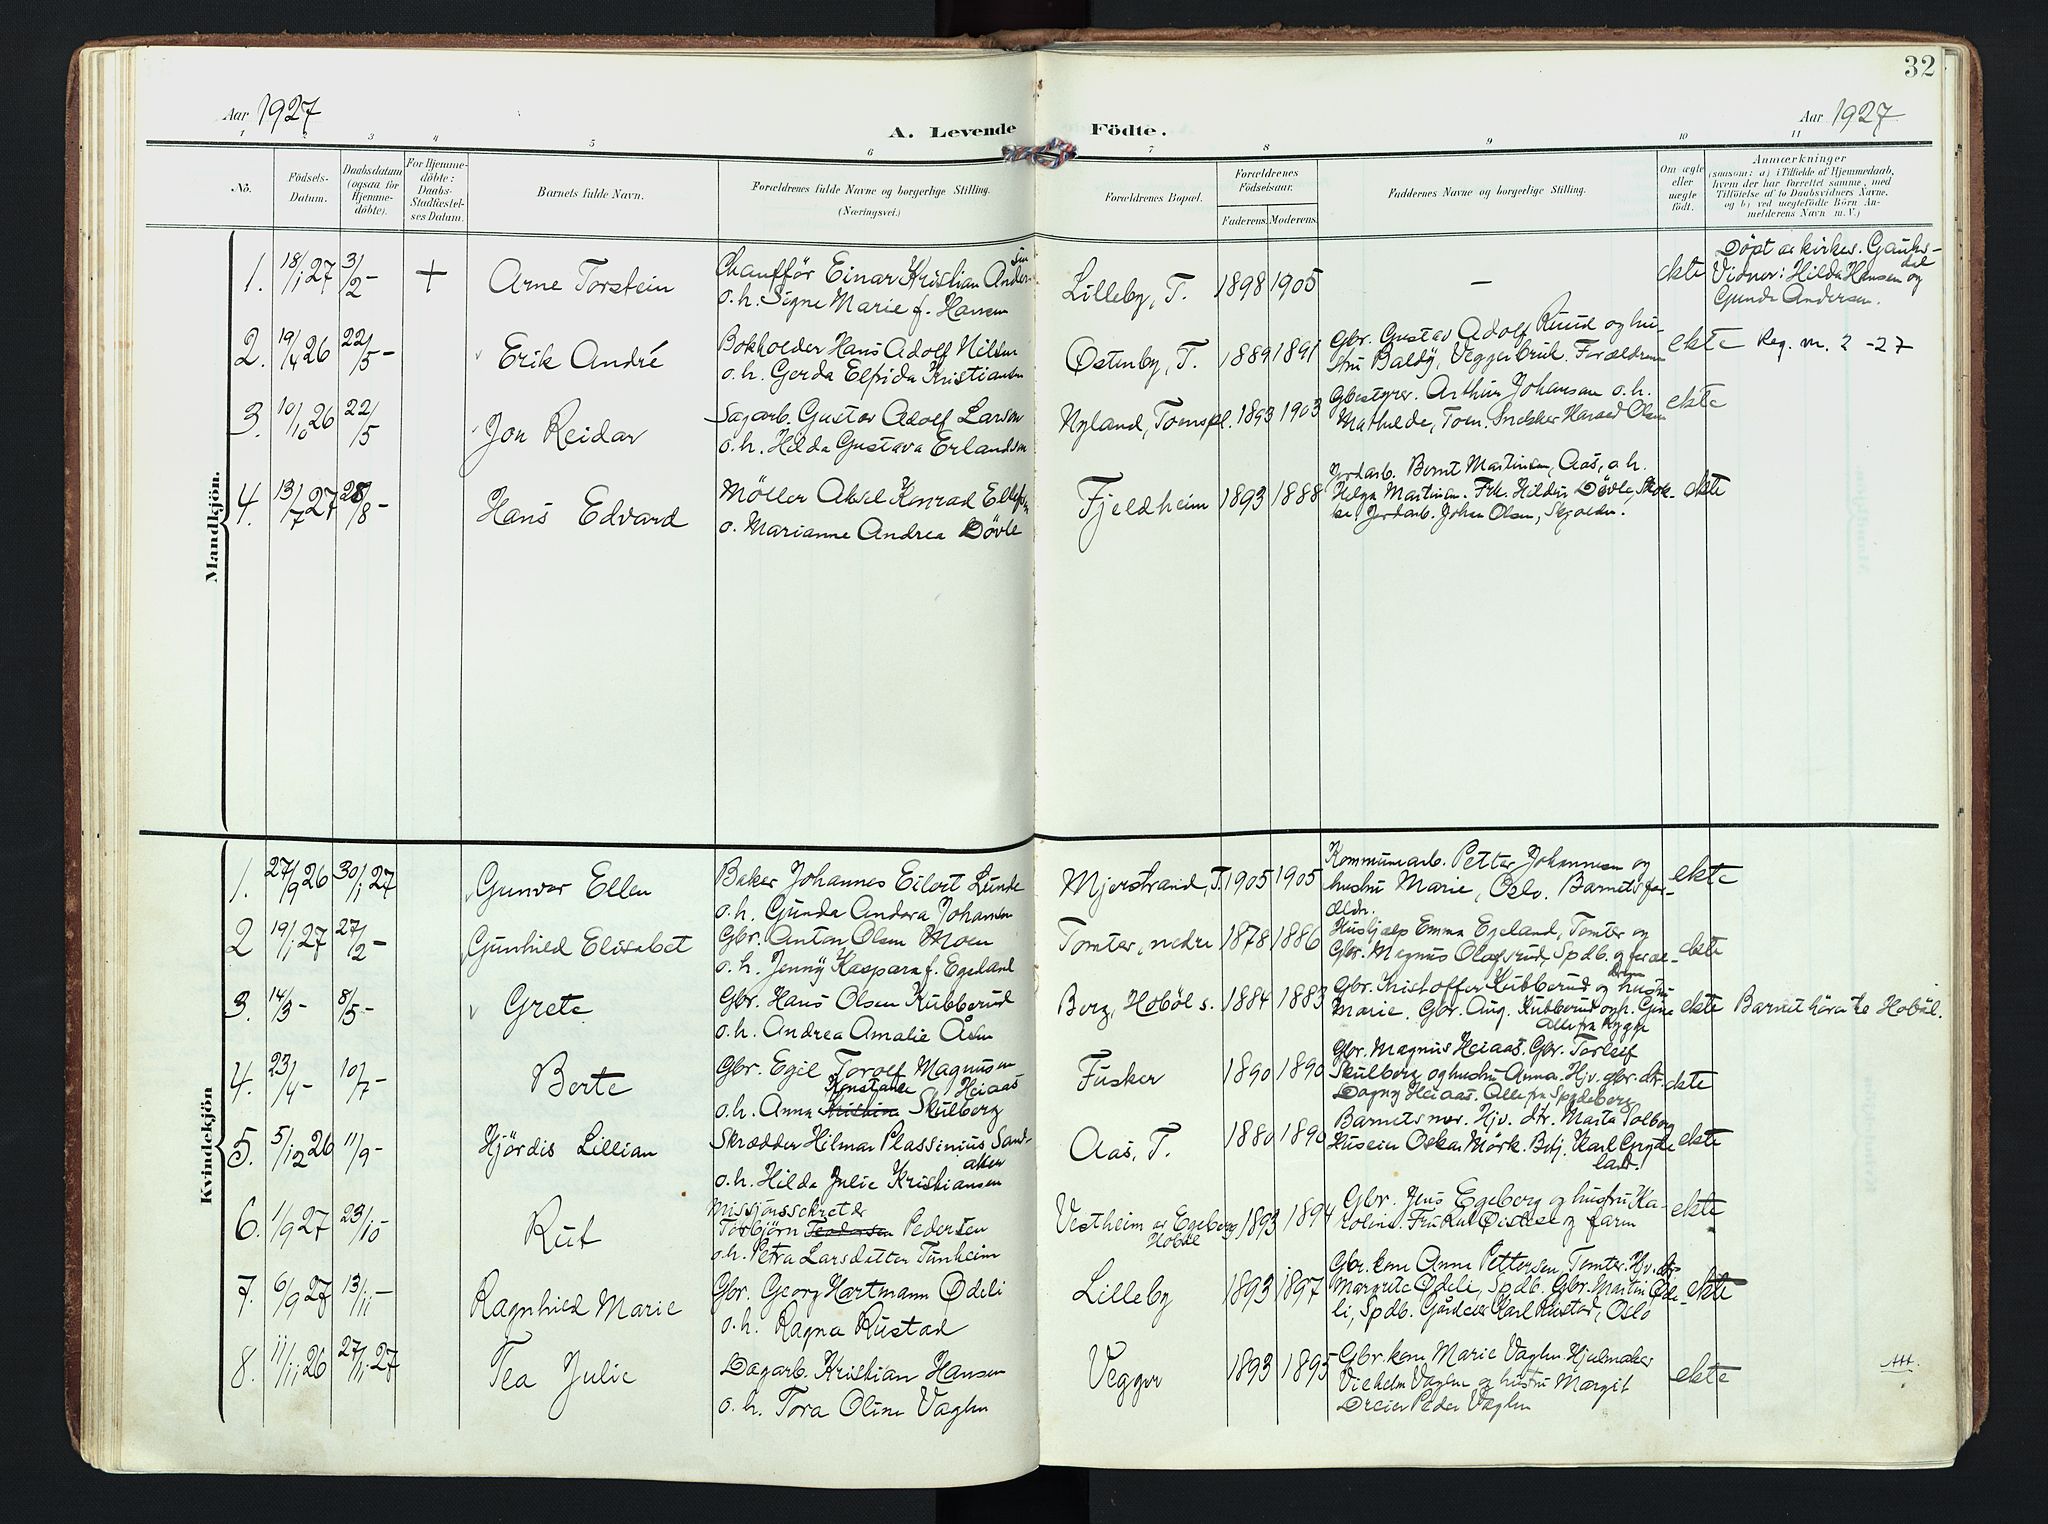 32
Aar 1927
A. Levende Födte.
Aar 1927
1 2 3 4 5 6 7 8 9 10 11
No.
Födsels-
Datum.
Daabsdatum
(ogsaa for
Hjemme-
döbte).
For Hjemme-
döbte:
Daabs-
Stadfæstel-
ses Datum.
Barnets fulde Navn.
Forældrenes fulde Navne og borgerlige Stilling.
(Næringsvei.)
Forældrenes Bopæl.
Forældrenes
Födselsaar.
Faderens. Moderens.
Faddernes Navne og borgerlige Stilling.
Om ægte
eller
uægte
födt.
Anmærkninger
(saasom: a) i Tilfælde af Hjemmedaab,
hvem der har forrettet samme, med
Tilföielse af to Daabsvidners Navne.
og b) ved uægtefödte Börn An-
melderens Navn m. V.)
Mandkjön.
1. 18/1 27 3/2 - + Arne Torstein
Chaufför Einar Kristian Ander-
sen
o. h. Signe Marie f. Hansen
Lilleby, T. 1898 1905 - ekte
Döpt av kirkes. Gauks-
dal
Vidner: Hilda Hansen og
Gunda Andersen.
2. 19/4 26 22/5 - Erik André
Bokholder Hans Adolf Nilsen
o. h. Gerda Elfrida Kristiansen
Östenby, T. 1889 1891
Gbr. Gustav Adolf Ruud og hu-
stru Baldy, Veggerbruk. Forældrene
ekte Reg. m. 2 -27
3. 10/10 26 22/5 Jon Reidar
Sagarb. Gustav Adolf Larson
o. h. Hilda Gustava Erlandson
Nyland, Tomspl. 1893 1903
Gbestyrer. Arthur Johansen o. h.
Mathilde, Tom. Snekker Harald Olsen
ekte
4. 13/7 27 28/8 - Hans Edvard
Möller Aksel Konrad Ellefsen
o. Marianne Andrea Dövle
Fjeldheim 1893 1888
Jordarb. Bernt Martinsen, Aas, o. h.
Helga Martinsen. Frk. Hildur Dövle, Skok-
ke. Jordarb. Johan Olsen, Skjolden.
ekte
Kvindekjön
1. 27/9 26 30/1 27 Gunvor Ellen
Baker Johannes Eilert Lunde
o. h. Gunda Andora Johansen
Mjerstrand, T. 1905 1905
Kommunearb. Petter Johannesen og
hustru Marie, Oslo. Barnets for-
ældr.
ekte
2 19/1 27 27/2 - Gunhild Elisabet
Gbr. Anton Olsen Moen
o. h. Jenny Kaspara f. Egeland
Tomter, nedre 1878 1886
Hushjælp Emma Egeland, Tomter og
Gbr. Magnus Olafsrud, Spdb. og foræl-
drene
ekte
3. 14/3 - 8/5 - Grete
Gbr. Hans Olsen Kubberud
o. h. Andrea Amalie Åsen
Berg, Hobøl s. 1884 1883
Gbr. Kristoffer Kubberud og hustru
Marie. Gbr. Aug. Kubberud og h. Gina
Alle fra Rygge
ekte Barnet hörer te Hobøl.
4. 23/4 - 10/7 - Berte
Gbr. Egil Torolf Magnusen
Heiaas
o. h. Anna Kristine Konstanse Skulberg
Fusker 1890 1890
Gbr. Magnus Heiaas. Gbr. Torleif
Skulberg og hustru Anna. Hjv. gbr. dtr.
Dagny Heiaas. Alle fra Spydeberg
ekte
5. 5/12 26 11/9 - Hjördis Lillian
Skrædder Hilmar Plassinius Sand-
aker
o. h. Hilda Julie Kristiansen
Aas, T. 1880 1890
Barnets mor. Hjv. dtr. Marta Solberg
Huseier Oskar Mörk. Betj. Karl Gryte
land.
ekte
6. 1/9 27 23/10 Rut
Missjonssekretær
Torbjörn Teodorsen Pedersen
o. h. Petra Larsdatter Tunheim
Vestheim av Egeberg
Hobøl
1893 1894
Gbr. Jens Egeberg og hustru Ka-
roline. Fru Rut Öddel og farm
ekte
7. 6/9 27 13/11 - Ragnhild Marie
Gbr. Georg Hartmann Ödeli
o. h. Ragna Rustad
Lilleby 1893 1897
Gbr. kone Anne Pettersen, Tomter. Hjv. dtr.
Margrete Ödeli, Spdb. Gbr. Martin Öde-
li, Spdb. Gårdeier Karl Rustad, Oslo
ekte
8. 11/11 26 27/11 27 Tea Julie
Dagarb. Kristian Hansen
o. h. Tora Oline Vaglen
Vegger 1893 1895
Gbr. kone Marie Vaglen. Hjulmaker
Vilhelm Vaglen og hustru Margit
Dreier Peder Vaglen
ekte Att.